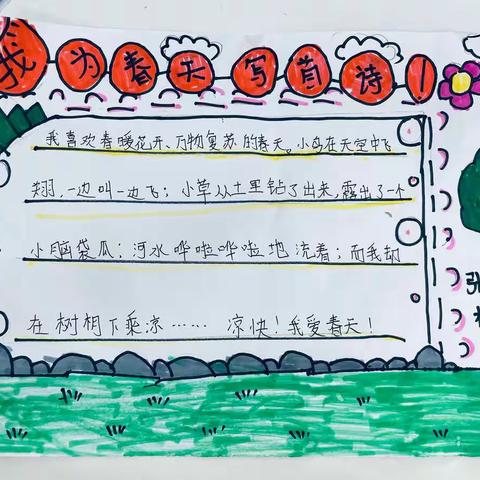 我为春天写首诗！
我喜欢春暖花开、万物复苏的春天。小鸟在天空中飞
翔，一边叫一边飞；小草从土里钻了出来，露出了一个
小脑袋瓜；河水哗啦哗啦地流着；而我却
在树相下乘凉…… 凉快！我爱春天！
张